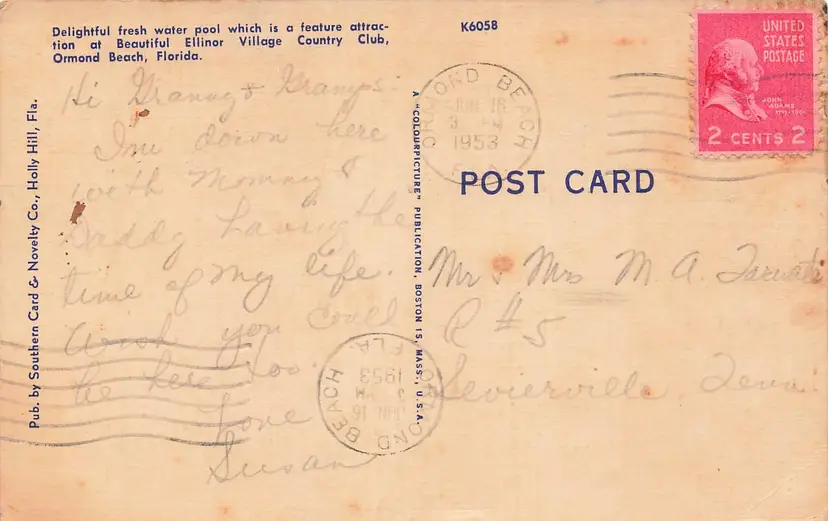 Delightful fresh water pool which is a feature attrac-
tion at Beautiful Ellinor Village Country Club,
Ormond Beach, Florida.
K6058
Hi Granny & Gramps.
I'm down here
with Mommy &
Daddy having the
time of my life.
Wish you could
be here too.
Love
Susan
Pub. by Southern Card & Novelty Co., Holly Hill, Fla.
A "COLOURPICTURE" PUBLICATION, BOSTON 15, MASS., U.S.A.
ORMOND BEACH
JUN 16
3 PM
1953
FLA.
UNITED
STATES
POSTAGE
JOHN
ADAMS
2 CENTS 2
POST CARD
Mr & Mrs M A
R #5
Sevierville, Tenn.
ORMOND BEACH
FLA.
JUN 16
3 PM
1953